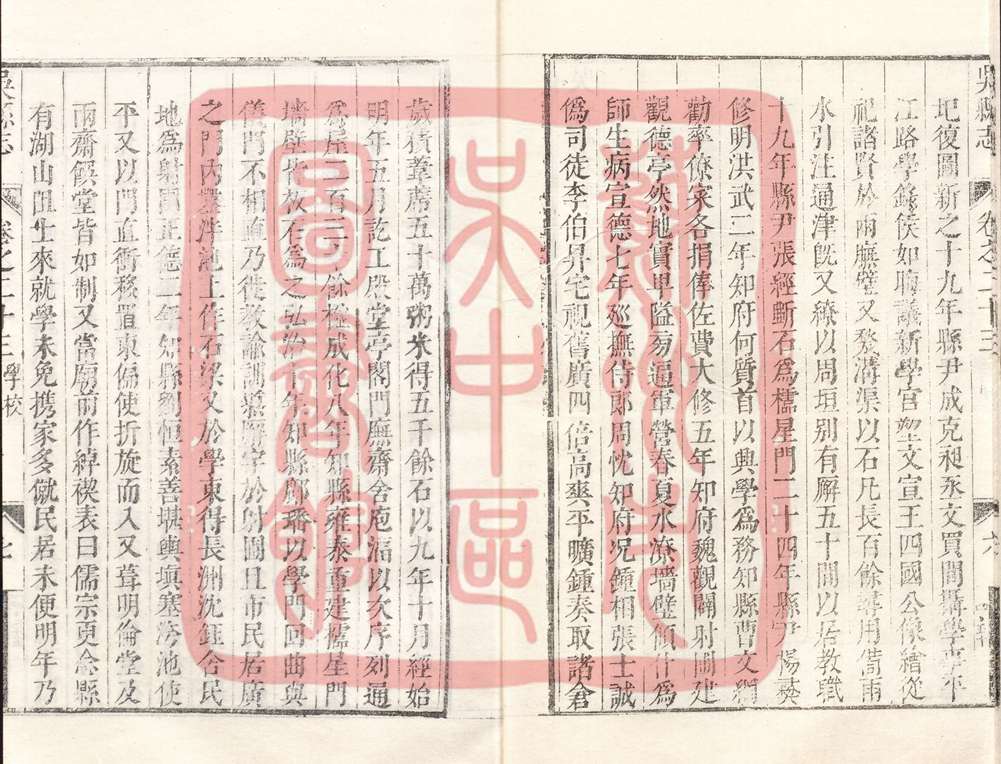 吳縣志 卷之二十三 六
圯復圖新之十九年縣尹成克昶丞文買閭攝學事平
江路學錄侯如晦議新學宮塑文宣王四國公像繪從
祀諸賢於兩廡壁又甃溝渠以石凡長百餘尋用備雨
水引注通津既又繚以周垣别有廨五十間以居教職
十九年縣尹張經斲石為櫺星門二十四年縣尹楊彞
修明洪武二年知府何質首以興學爲務知縣曹文綱
勸率僚寀各捐俸佐費大修五年知府魏觀闢射圃建
觀德亭然地實卑隘旁逼軍營春夏水潦墻壁傾仆爲
師生病宣德七年廵撫侍郎周忱知府况鐘相張士誠
僞司徒李伯昇宅視舊廣四倍高爽平曠鍾奏取諸倉
歲積葦蓆五十萬粥米得五千餘石以九年十月經始
明年五月訖工殿堂亭閣門廡齋舍庖湢以次序列通
爲屋二百三十餘楹成化八年知縣雍泰重建櫺星門
墻壁作坊左右爲之弘治十年知縣鄺璠以學門回曲與
儀門不相直乃徙教諭訓導廨宇於射圃且市民居廣
之門內鑿泮池上作石梁又於學東得長洲沈鈺舍民
地爲射圃正德二年知縣劉恒素善堪輿塡塞泮池使
平又以門直衝移置東偏使折旋而入又葺明倫堂及
兩齋饌堂皆如制又當廟前作綽楔表曰儒宗更念縣
有湖山阻生來就學未免携家多僦民居未便明年乃
吳縣志 卷之二十三 學校 七
蘇州市
吳中區
圖書館